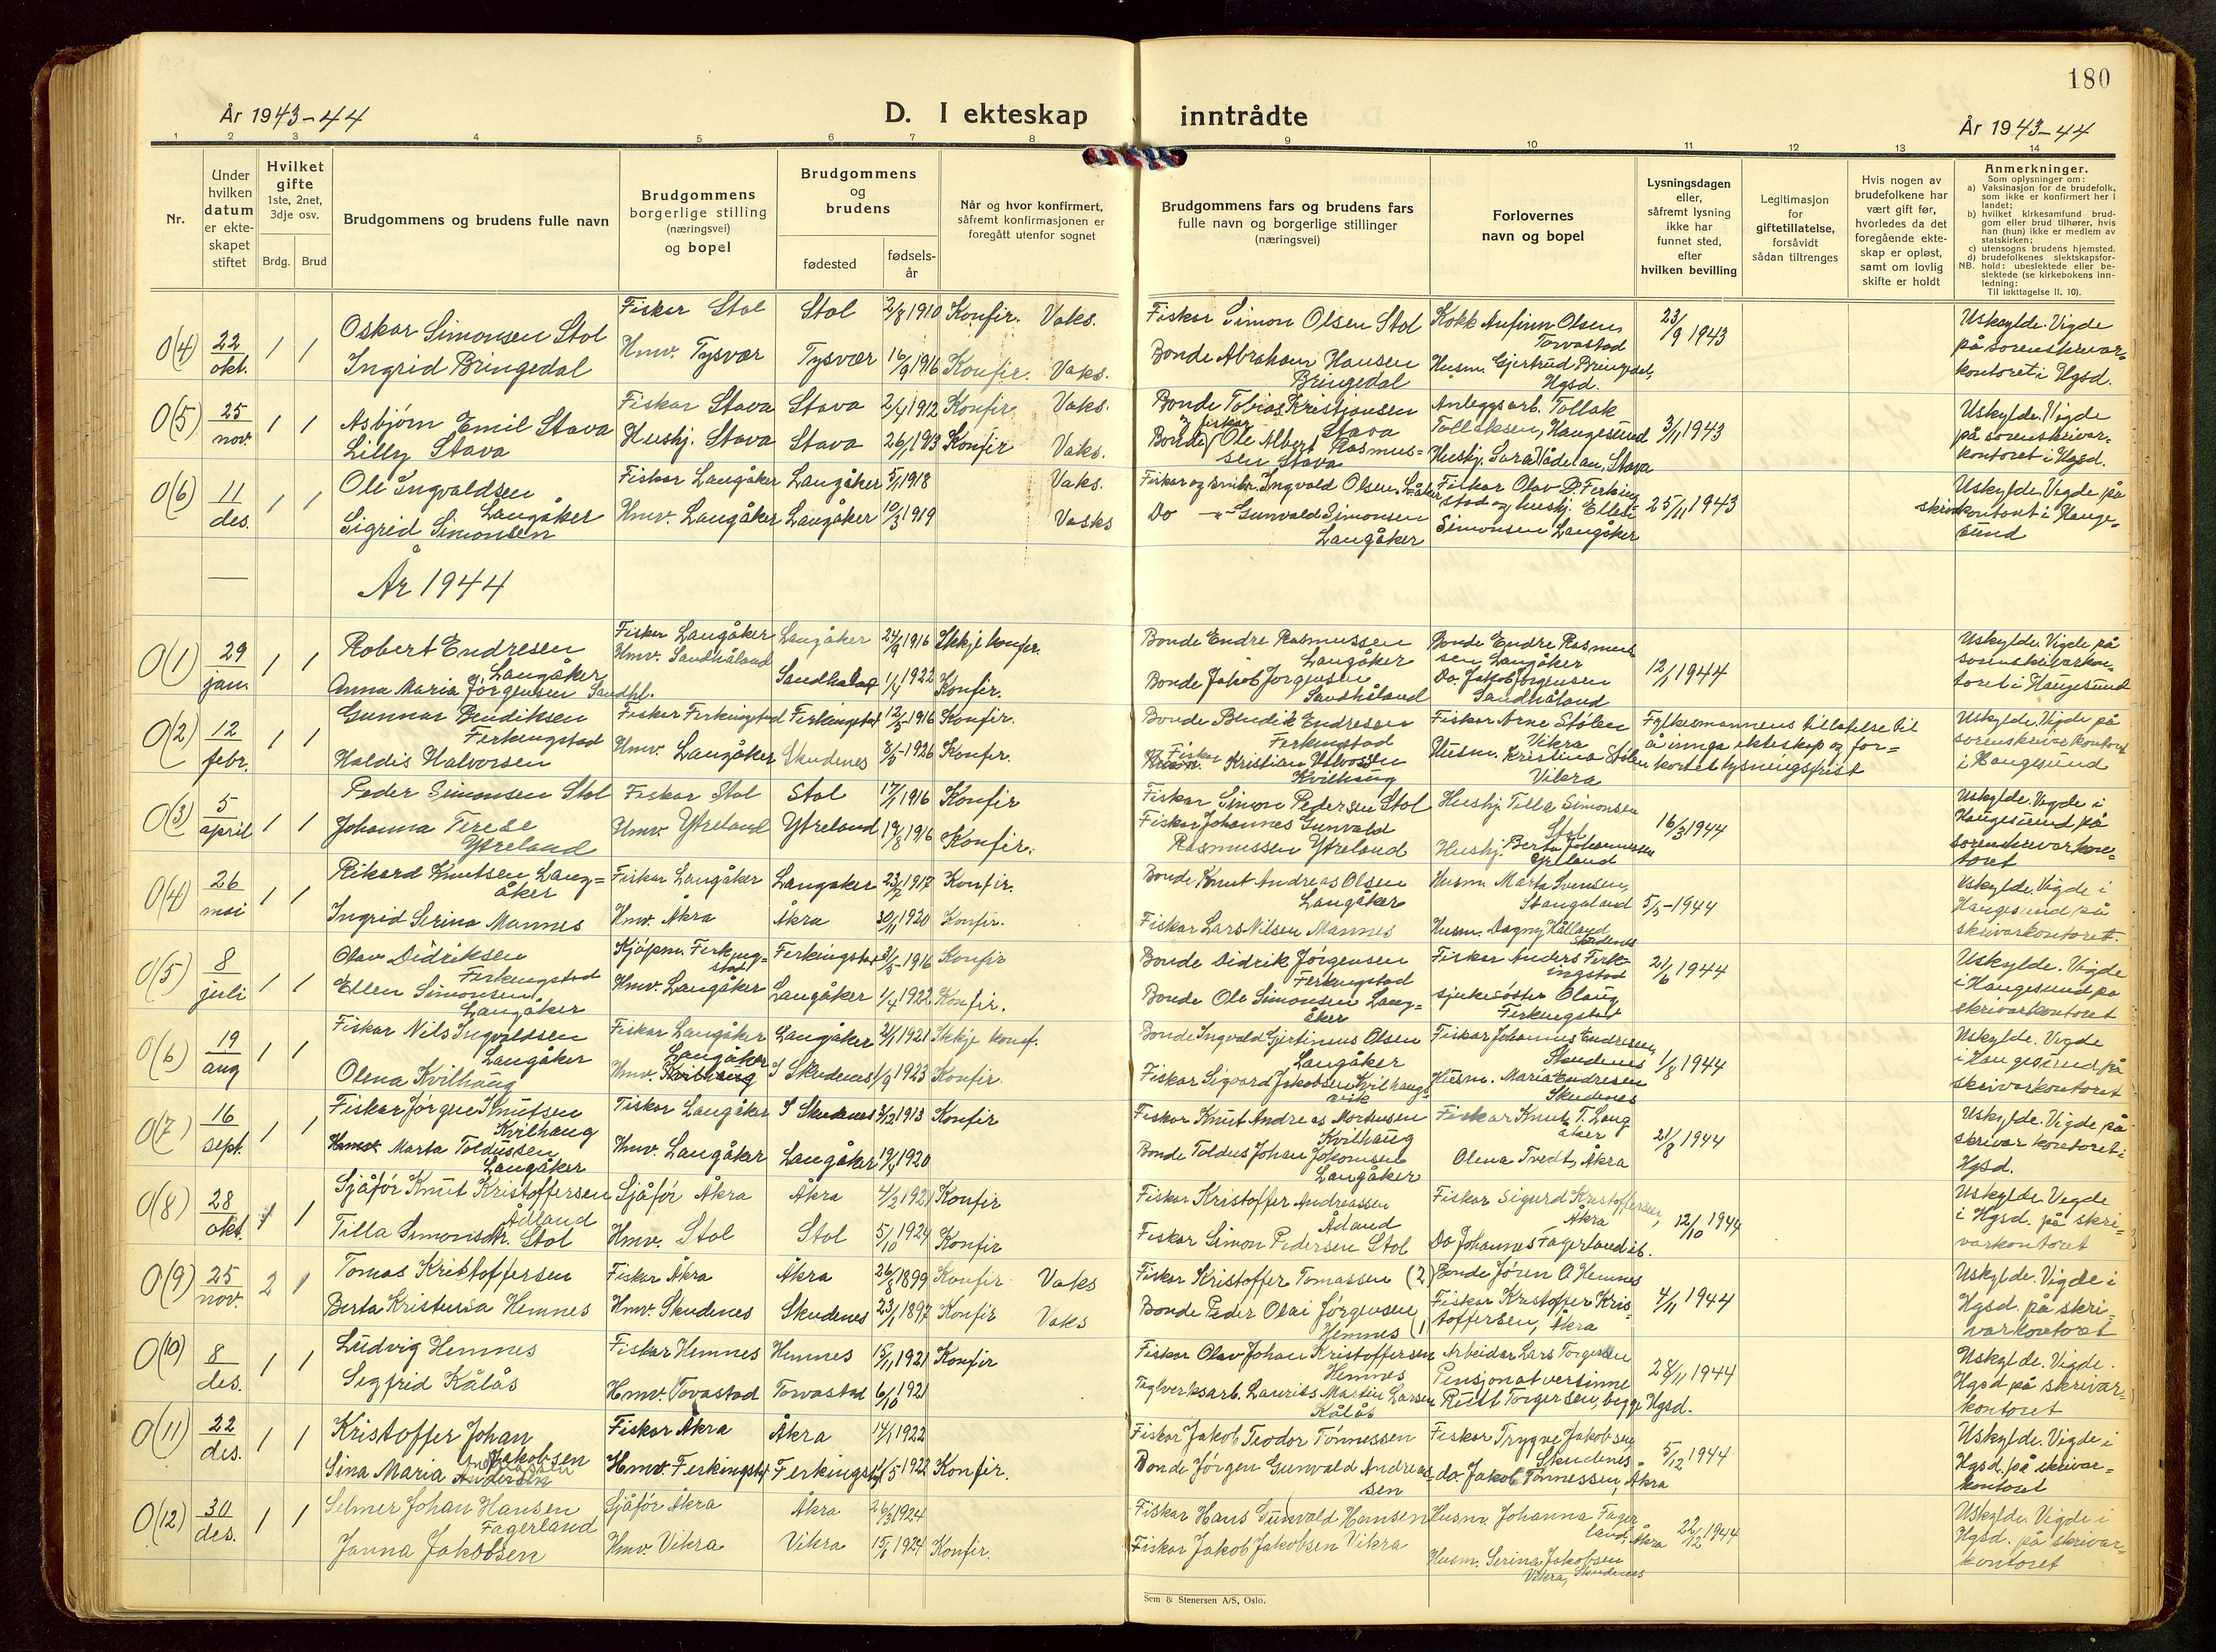 180
År 1943-44
D. I ekteskap
inntrådte
År 1943-44
1 2 3 4 5 6 7 8 9 10 11 12 13 14
Nr.
Under hvilken datum er ekte-skapet stiftet
Hvilket gifte
1ste, 2net, 3dje osv.
Brdg. Brud
Brudgommens og brudens fulle navn
Brudgommens borgerlige stilling (næringsvei) og bopel
Brudgommens og brudens
fødested
fødsels-år
Når og hvor konfirmert, såfremt konfirmasjonen er foregått utenfor sognet
Brudgommens fars og brudens fars fulle navn og borgerlige stillinger (næringsvei)
Forlovernes navn og bopel
Lysningsdagen eller, såfremt lysning ikke har funnet sted, efter hvilken bevilling
Legitimasjon for giftetillatelse, forsåvidt sådan tiltrenges
Hvis nogen av brudefolkene har vært gift før, hvorledes da det foregående ekte-skap er opløst, samt om lovlig skifte er holdt
Anmerkninger.
Som oplysninger om:
a) Vaksinasjon for de brudefolk, som ikke er konfirmert her i landet;
b) hvilket kirkesamfund brud-gom eller brud tilhører, hvis han (hun) ikke er medlem av statskirken;
c) utensogns brudens hjemsted.
d) brudefolkenes slektskapsfor-hold: ubeslektede eller be-slektede (se kirkebokens inn-ledning:
NB.
Til iakttagelse II. 10).
0(4) 22 okt. 1 1
Oskar Simonsen Stol Fiskar Stol Stol 2/8 1910 Konfir. Vaks.
Ingrid Bringedal Hmv. Tysvær Tysvær 16/9 1916 Konfir. Vaks.
Fiskar Simon Olsen Stol Kokk Anfinn Olsen, Torvastad 23/9 1943
Bonde Abraham Hansen Bringedal Husm. Gjertrud Bringedal, Hgsd.
Uskylde. Vigde på sorenskrivar-kontoret i Hgsd.
0(5) 25 nov. 1 1
Asbjørn Emil Stava Fiskar Stava Stava 2/4 1912 Konfir. Vaks.
Lilly Stava Hushj. Stava Stava 26/1 1913 Konfir Vaks.
Bonde Tobias Kristiansen Stava Anleggsarb. Tollak Tollaksen, Haugesund 3/11 1943
Bonde og fiskar Ole Albert Rasmus-sen Stava Hushj. Sara Ådelan, Stava
Uskylde. Vigde på sorenskrivar-kontoret i Hgsd.
0(6) 11 des. 1 1
Ole Ingvaldsen Langåker Fiskar Langåker Langåker 5/1 1918 Vaks.
Sigrid Simonsen Hmv. Langåker Langåker 10/3 1919 Vaks
Ingvald Olsen, Fiskar Olav D. Ferking-stad og hushj. Ellen Simonsen Langåker 25/11 1943
Do -"- Gunvald Simonsen Langåker
Uskylde. Vigde på skrivarkontoret i Hauge-sund
År 1944
0(1) 29 jan. 1 1
Robert Endresen Langåker Fiskar Langåker Langåker 24/9 1916 Ikkje konfir.
Anna Maria Jörgensen Sandhl. Hmv. Sandhåland Sandhaland 1/4 1922 Konfir.
Bonde Endre Rasmussen Langåker Bonde Endre Rasmus-sen Langåker 12/1 1944
Bonde Jakob Jörgensen Sandhåland Do. Jakob Jörgensen Sandhåland
Uskylde. Vigde på sorenskrivarkon-toret i Haugesund
0(2) 12 febr. 1 1
Gunnar Bendiksen Ferkingstad Fiskar Ferkingstad Ferkingstad 12/5-1916 Konfir.
Haldis Halvorsen Hmv. Langåker Skudenes 8/3-1926 Konfir.
Bonde Bendik Endresen Ferkingstad Fiskar Arne Stölen Vikra
Fiskar Kristian Halvorsen Kvilhaug Husm. Kristina Stölen Vikra
Fylkesmannens tillatelse til å innga ekteskap og for-kortet lysningsfrist
Uskylde. Vigde på sorenskrivarkontoret i Haugesund
0(3) 5 april 1 1
Peder Simonsen Stol Fiskar Stol Stol 17/1 1916 Konfir
Johanna Terese Ytreland Hmv. Ytreland Ytreland 19/8 1916 Konfir.
Fiskar Simon Pedersen Stol Hushj. Tilla Simonsen Stol 16/3 1944
Fiskar Johannes Gunvald Rasmussen Ytreland Hushj. Berta Johannessen Ytreland
Uskylde. Vigde i Haugesund på sorenskrivarkon-toret
0(4) 26 mai 1 1
Rikard Knutsen Lang-åker Fiskar Langåker Langåker 23/7 1917 Konfir.
Ingrid Serina Mannes Hmv. Åkra Åkra 30/11 1920 Konfir.
Bonde Knut Andreas Olsen Langåker Husm. Marta Svensen, Stangaland 5/5-1944
Fiskar Lars Nilsen Mannes Husm. Dagny Hålland Skudenes
Uskylde. Vigde i Haugesund på skrivarkontoret.
0(5) 8 juli 1 1
Olav Didriksen Ferkingstad Kjöpm. Ferking-stad Ferkingstad 31/5-1916 Konfir
Ellen Simonsen Langåker Hmv. Langåker Langåker 1/4 1922 Konfir.
Bonde Didrik Jörgensen Ferkingstad Fiskar Anders Ferk-ingstad 21/6 1944
Bonde Ole Simonsen Lang-åker sjukesöster Olaug Ferkingstad
Uskylde. Vigde i Haugesund på skrivarkontoret
0(6) 19 aug 1 1
Fiskar Nils Ingvaldsen Langåker Fiskar Langåker Langåker 21/1 1921 Ikkje konf.
Olena Kvilhaug Hmv. Langåker Skudenes 1/9 1923 Konfir.
Bonde Ingvald Gjertinius Olsen Langåker Fiskar Johannes Endresen, Skudenes 1/8 1944
Fiskar Sigvard Jakobsen Kvilhaugs-vik Husm. Maria Endresen Skudenes
Uskylde. Vigde i Haugesund på skrivarkontoret
0(7) 16 sept. 1 1
Fiskar Jörgen Knutsen Kvilhaug Fiskar Langåker Skudenes 3/12 1913 Konfir
Marta Toldussen Langåker Hmv. Langåker Langåker 19/4 1920
Fiskar Knut Andreas Mortensen Kvilhaug Fiskar Knut T. Lang åker 21/8 1944
Bonde Toldus Johan Langåker Olena Tvedt, Åkra
Uskylde. Vigde på skrivarkontoret i Hgsd.
0(8) 28 okt. 1 1
Sjåfør Knut Kristoffersen Ådland Sjåfør Åkra Åkra 4/2 1921 Konfir
Tilla Simonsdtr. Stol Hmv. Stol Stol 5/10 1924 Konfir
Fiskar Kristoffer Andreassen Ådland Fiskar Sigurd Kristoffersen, Åkra 12/10 1944
Fiskar Simon Pedersen Stol Do Johannes Fagerland ib.
Uskylde. Vigde i Hgsd. på skri-varkontoret
0(9) 25 nov. 2 1
Tomas Kristoffersen Fiskar Åkra Åkra 26/8 1899 Konfir. Vaks
Berta Kristiania Hemnes Hmv. Skudenes Skudenes 23/1 1897 Konfir Vaks
Fiskar Kristoffer Tomassen (2) Bonde Jören O Hemnes 4/11 1944
Bonde Peder Olai Jörgensen Hemnes (1) Fiskar Kristoffer Kris-toffersen, Åkra
Uskylde. Vigde i Hgsd. på skri-varkontoret
0(10) 8 des. 1 1
Ludvig Hemnes Fiskar Hemnes Hemnes 15/11 1921 Konfir
Segfrid Kålås Hmv. Tovastad Torvastad 6/10 1921
Fiskar Olav Johan Kristoffersen Hemnes Arbeidar Lars Torgersen 28/11 1944
Teglverksarb. Laurits Martin Larsen Kålås Pensjonatvertinne Rutt Torgersen, begge Hgsd.
Uskylde. Vigde. Hgsd på skrivar-kontoret
0(11) 22 des. 1 1
Kristoffer Johan Jakobsen Fiskar Åkra Åkra 14/1 1922
Sina Maria Andreassen Hmv. Ferkingstad Ferkingstad 1/5 1922 Konfir.
Fiskar Jakob Teodor Tönnessen Fiskar Trygve Jakobsen, Skudenes 5/12 1944
Bonde Jörgen Gunvald Andreas-sen do. Jakob Tönnessen, Åkra
Uskylde. Vigde i Hgsd. på skrivar-kontoret
0(12) 30 des. 1 1
Selmer Johan Hansen Fagerland Sjåfør Åkra Åkra 26/3 1924
Janna Jakobsen Hmv. Vikra Vikra 15/6 1924 Konfir.
Fiskar Hans Gunvald Hansen Husm. Johanna Fager land, Åkra 22/12 1944
Fiskar Jakob Jakobsen Vikra Husm. Serina Jakobsen Vikra, Skudenes
Uskylde. Vigde i Hgsd. på skrivar-kontoret
Sem & Stenersen A/S, Oslo.